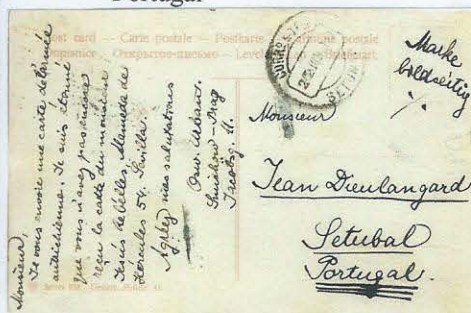 Portugal
Post card — Carte postale — Postkarte — postale
Открытое письмо —
CORRO.
SETUBAL
Marke
bildseitig
Monsieur
Jean Dieulangard
Setubal
Portugal.
Monsieur,
Je vous envoie une carte de l'armée
autrichienne. Je suis étonné
que vous n'avez pas encore
reçu la carte du monsieur
Jesús de Velles, Manuela de
Hércules 54. Sevilla.
Agréez mes salutations
Osw. Urban.
Smichow - Prag
11.